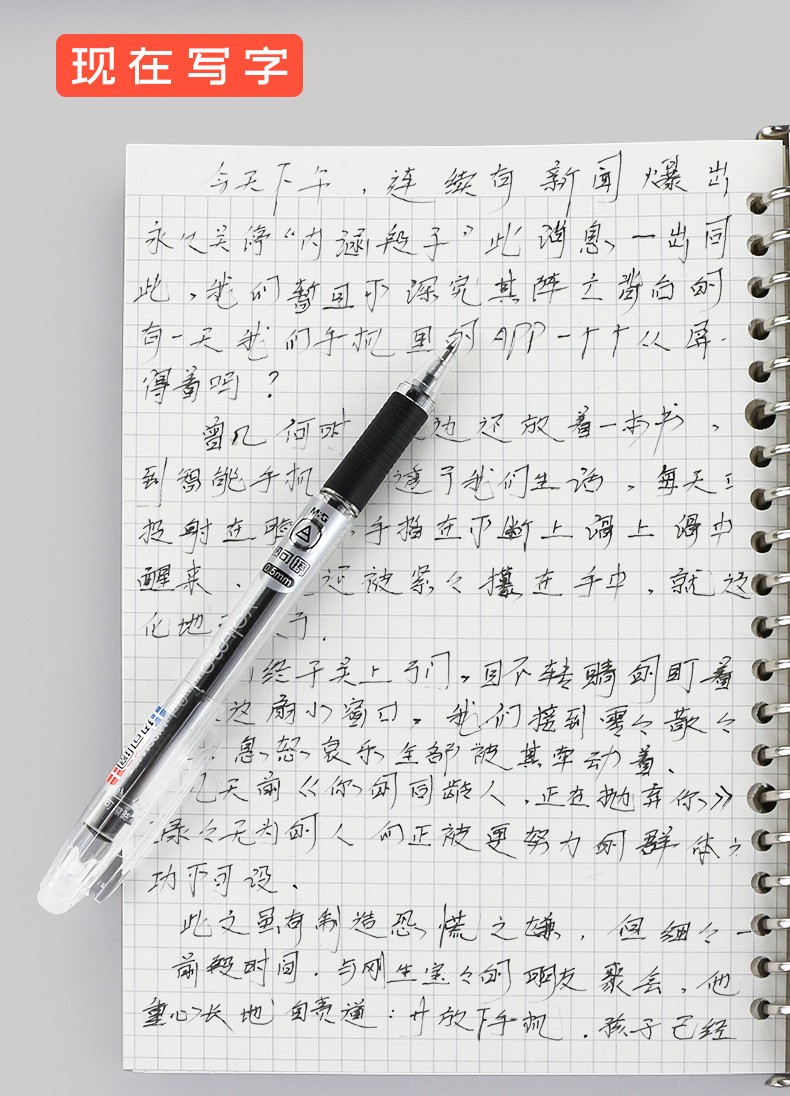 现在写字
今天下午，连续有新闻爆出
永久关停“内涵段子”此消息一出同
此，我们暂且不深究其阵之背后的
有一天我们手机里的APP一个个从屏
得着吗？
曾几何时 边还放着一本书，
到智能手机 透了我们生活，每天
投射在 手指在不断上滑上滑中
醒来， 还被紧々攥在手中，就这
化地
终于关上了门，目不转睛的盯着
这扇小窗口，我们接到零々散々
喜怒哀乐全部被其牵动着、
几天前《你的同龄人，正在抛弃你》
碌々无为的人们正被更努力的群体
功不可没、
此文虽有制造恐慌之嫌，但细々一
前段时间，与刚生宝々的朋友聚会，他
重心长地自责道：放下手机，孩子已经
M&G
0.5mm